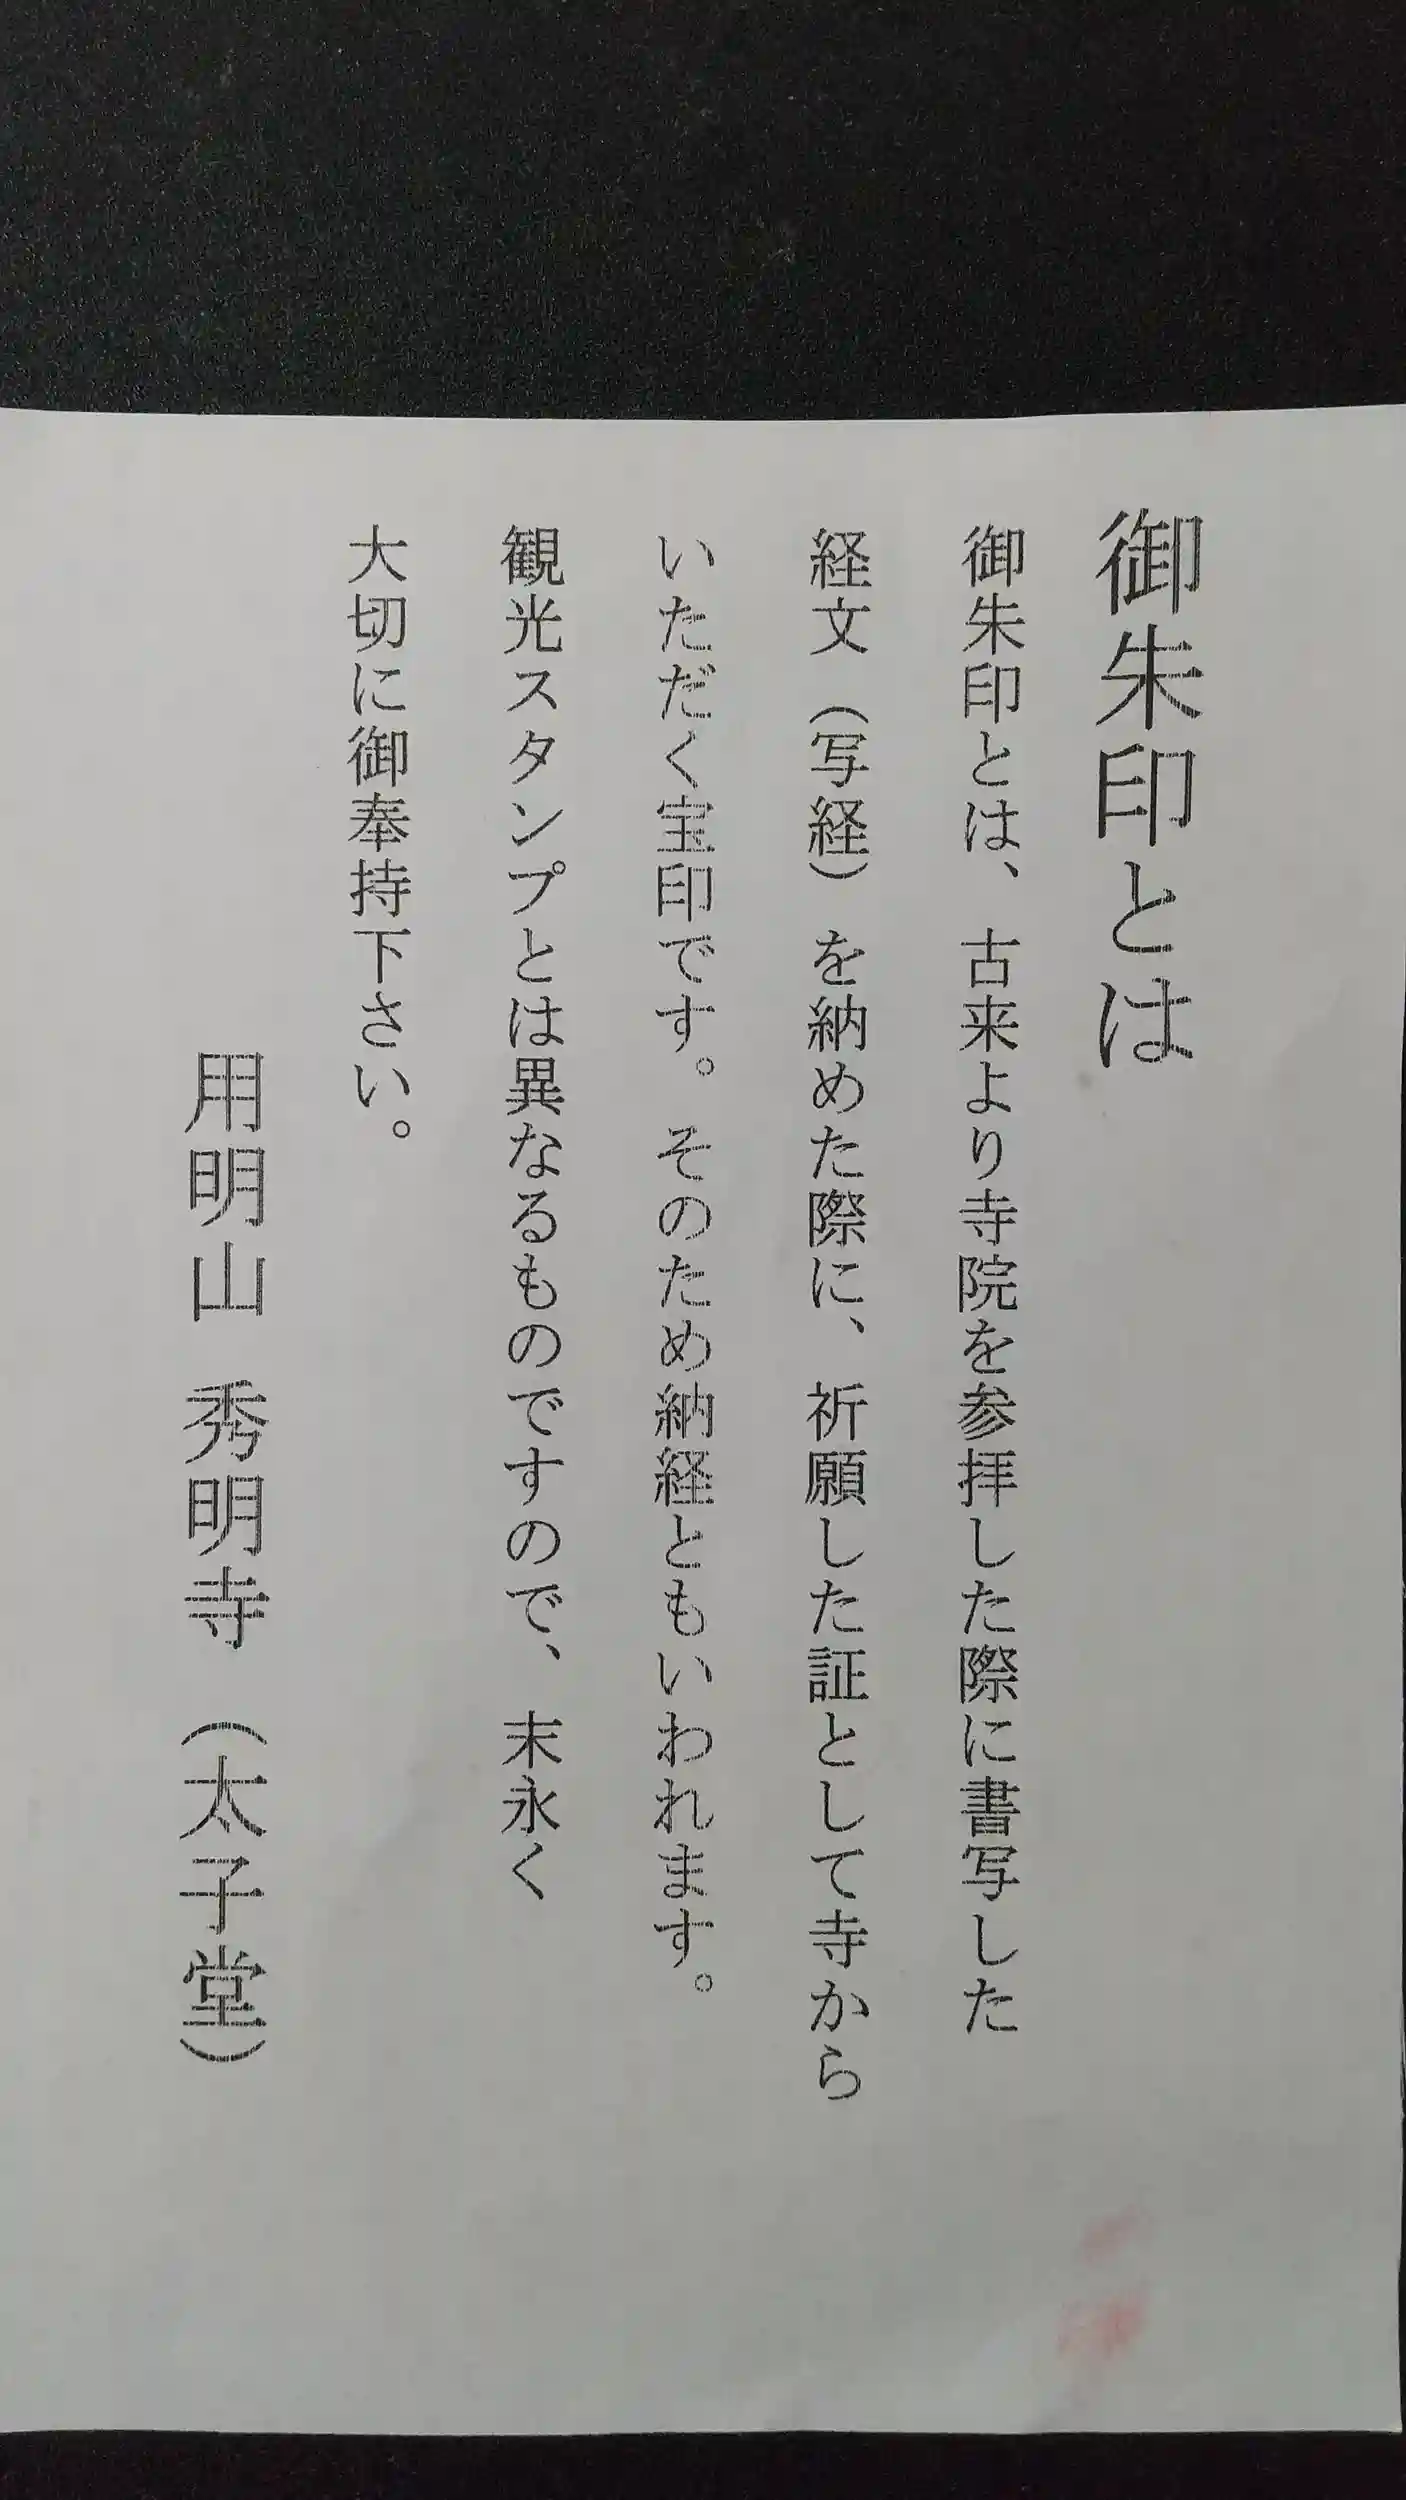 御朱印とは
御朱印とは、古来より寺院を参拝した際に書写した
経文（写経）を納めた際に、祈願した証として寺から
いただく宝印です。そのため納経ともいわれます。
観光スタンプとは異なるものですので、末永く
大切に御奉持下さい。
用明山　秀明寺　（太子堂）